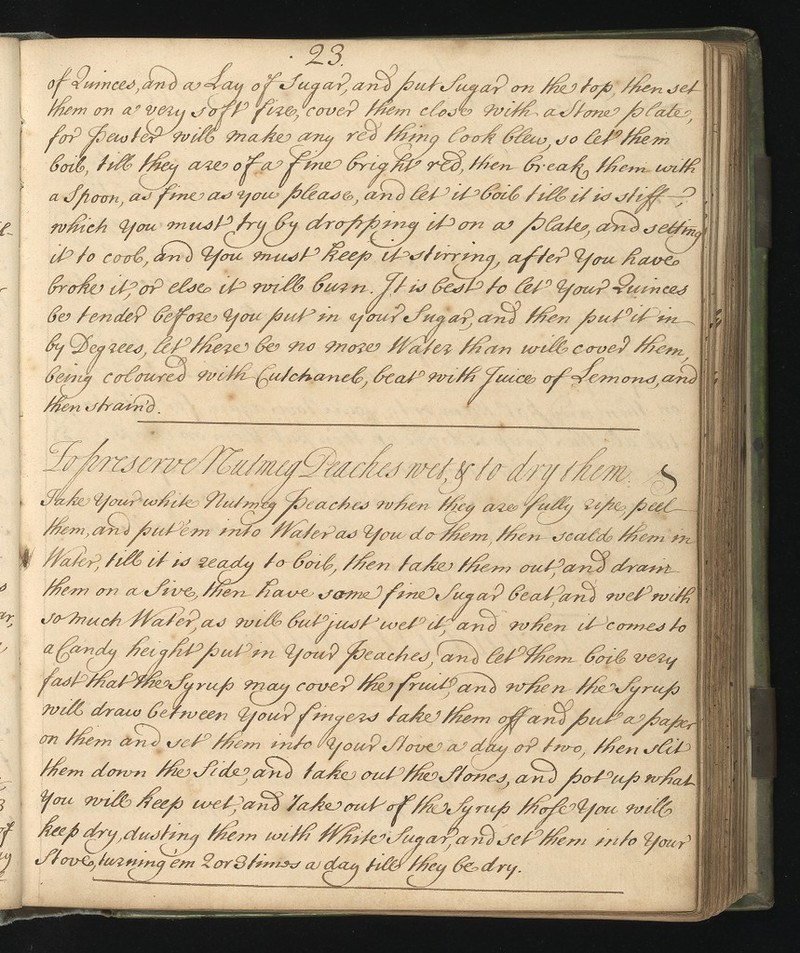 23.
of Quinces, and a Lay of Sugar, and put Sugar on the top, then set
them on a very soft fire, cover them close with a Stone plate,
for Pewter will make any red thing look blew, so let them
boil, till they are of a fine bright red, then break them with
a Spoon, as fine as you please, and let it boil till it is stiff,
which you must try by dropping it on a plate, and setting
it to cool, and you must keep it stirring, after you have
broke it, or else it will burn. It is best to let your Quinces
be tender before you put in your Sugar, and then put it in
by Degrees, let there be no more Water than will cover them,
being coloured with Cutchanel, beat with Juice of Lemons, and
then strain'd.
To preserve Nutmeg Peaches wet, & to dry them.
Take your white Nutmeg Peaches when they are fully ripe, peel
them, and put 'em into Water as you do them, then scald them in
Water, till it is ready to boil, then take them out, and drain
them on a Sive, then have some fine Sugar beat, and wet with
so much Water, as will but just wet it, and when it comes to
a Candy height put in your Peaches, and let them boil very
fast that the Syrup may cover the fruit, and when the Syrup
will draw between your fingers take them off and put a paper
on them and set them into your Stove a day or two, then slit
them down the Side, and take out the Stones, and pot up what
you will keep wet, and take out of the Syrup those you will
keep dry, dusting them with White Sugar, and set them into your
Stove, turning 'em 2 or 3 times a day till they be dry.